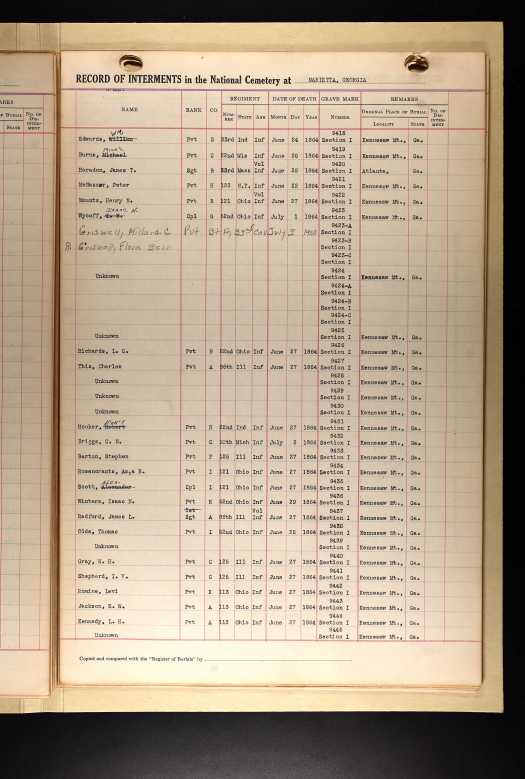 RECORD OF INTERMENTS in the National Cemetery at MARIETTA, GEORGIA
NAME RANK CO. REGIMENT DATE OF DEATH GRAVE MARK REMARKS
NUMBER STATE ARM MONTH DAY YEAR NUMBER ORIGINAL PLACE OF BURIAL NO. OF DISINTERMENT
LOCALITY STATE
9418
Edwards, Pvt 33rd Ind Inf June 1864 Section I Kennesaw Mt., Ga.
9419
Burns, Michael Pvt 22nd Inf June 1864 Section I Kennesaw Mt., Ga.
Vol 9420
Herndon, James T. Sgt 33rd Mass Inf June 1864 Section I Atlanta, Ga.
9421
Peter Pvt N.Y. Inf June 22 1864 Section I Kennesaw Mt., Ga.
Vol 9422
Henry N. Pvt 121 Ohio Inf June 27 1864 Section I Kennesaw Mt., Ga.
9423
Wycoff, Cpl 52nd Ohio Inf July 1 1864 Section I Kennesaw Mt., Ga.
9423-A
Griswell, Millard C Pvt July Section I
9423-B
Griswell, Flora Section I
9423-C
Section I
9424
Unknown Section I Kennesaw Mt., Ga.
9424-A
Section I
9424-B
Section I
9424-C
Section I
9425
Unknown Section I Kennesaw Mt., Ga.
9426
Richards, L. C. Pvt 52nd Ohio Inf June 27 1864 Section I Kennesaw Mt., Ga.
9427
Charles Pvt A 86th Ill Inf June 27 1864 Section I Kennesaw Mt., Ga.
9428
Unknown Section I Kennesaw Mt., Ga.
9429
Unknown Section I Kennesaw Mt., Ga.
9430
Unknown Section I Kennesaw Mt., Ga.
9431
Hooker, Robert Pvt 22nd Ind Inf June 27 1864 Section I Kennesaw Mt., Ga.
9432
Briggs, Pvt 10th Mich Inf July 1864 Section I Kennesaw Mt., Ga.
9433
Barton, Stephen Pvt F 125 Ill Inf June 27 1864 Section I Kennesaw Mt., Ga.
9434
Rosencrants, Pvt I 121 Ohio Inf June 27 1864 Section I Kennesaw Mt., Ga.
9435
Scott, Alexander Cpl I 121 Ohio Inf June 27 1864 Section I Kennesaw Mt., Ga.
9436
Winters, Isaac N. Pvt 52nd Ohio Inf June 29 1864 Section I Kennesaw Mt., Ga.
Vol 9437
Radford, James L. Sgt A 86th Ill Inf June 27 1864 Section I Kennesaw Mt., Ga.
9438
Olds, Thomas Pvt I 52nd Ohio Inf June 1864 Section I Kennesaw Mt., Ga.
9439
Unknown Section I Kennesaw Mt., Ga.
9440
Gray, Pvt C 125 Ill Inf June 27 1864 Section I Kennesaw Mt., Ga.
9441
Shepherd, I. V. Pvt C 125 Ill Inf June 27 1864 Section I Kennesaw Mt., Ga.
9442
Romine, Levi Pvt 113 Ohio Inf June 27 1864 Section I Kennesaw Mt., Ga.
9443
Jackson, Pvt A 113 Ohio Inf June 27 1864 Section I Kennesaw Mt., Ga.
9444
Kennedy, L. H. Pvt A 113 Ohio Inf June 27 1864 Section I Kennesaw Mt., Ga.
9445
Unknown Section I Kennesaw Mt., Ga.
Copied and compared with the "Register of Burials" by